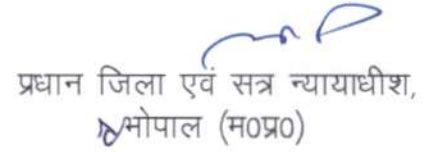 प्रधान जिला एवं सत्र न्यायाधीश,
भोपाल (म०प्र०)